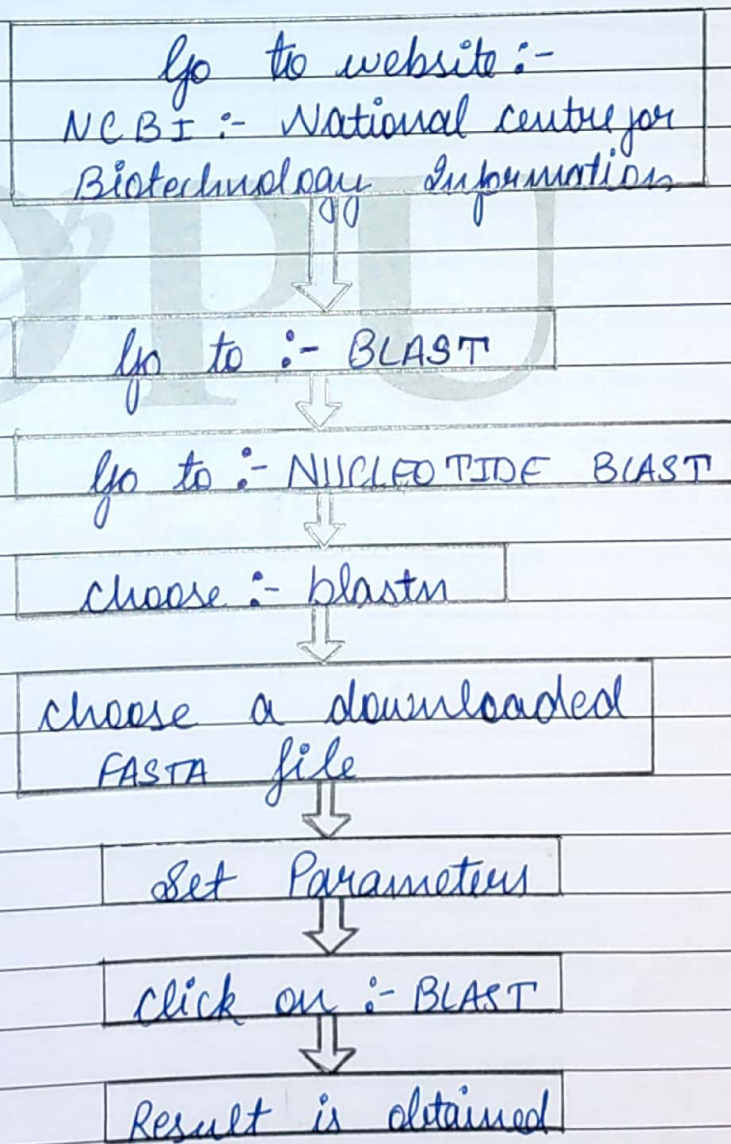 Go to website :-
NCBI :- National centre for
Biotechnology Information
Go to :- BLAST
Go to :- NUCLEOTIDE BLAST
choose :- blastn
choose a downloaded
FASTA file
Set Parameters
Click on :- BLAST
Result is obtained